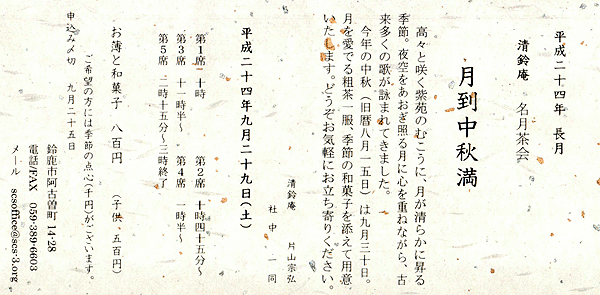 平成二十四年 長月
清鈴庵 名月茶会
月到中秋満
高々と咲く紫苑のむこうに、月が清らかに昇る
季節。夜空をあおぎ照る月に心を重ねながら、古
来多くの歌が詠まれてきました。
今年の中秋（旧暦八月一五日）は九月三十日。
月を愛でる粗茶一服、季節の和菓子を添えて用意
いたします。どうぞお気軽にお立ち寄りください。
清鈴庵 片山宗弘
社中一同
平成二十四年九月二十九日（土）
第1席 十時 第2席 十時四十五分〜
第3席 十一時半〜 第4席 一時半〜
第5席 二時十五分〜三時終了
お薄と和菓子 八百円 （子供、五百円）
ご希望の方には季節の点心（千円）がございます。
申込み〆切 九月二十五日
鈴鹿市阿古曽町 14-28
電話/FAX 059-389-6603
メール scsoffice@scs-3.org